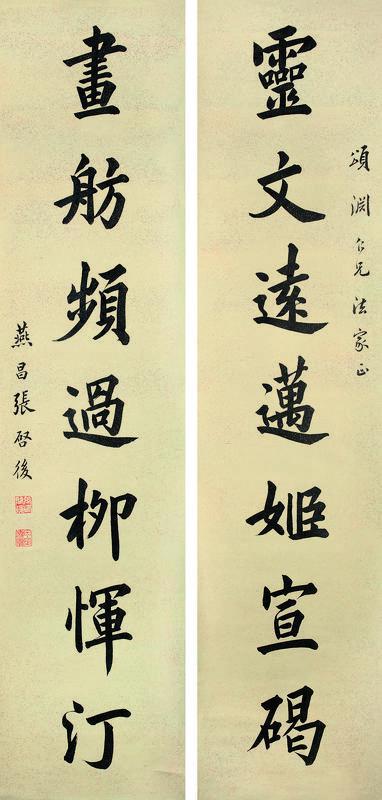 頌淵仁兄法家正
靈文遠邁姬宣碣
畫舫頻過柳惲汀
燕昌張啓後